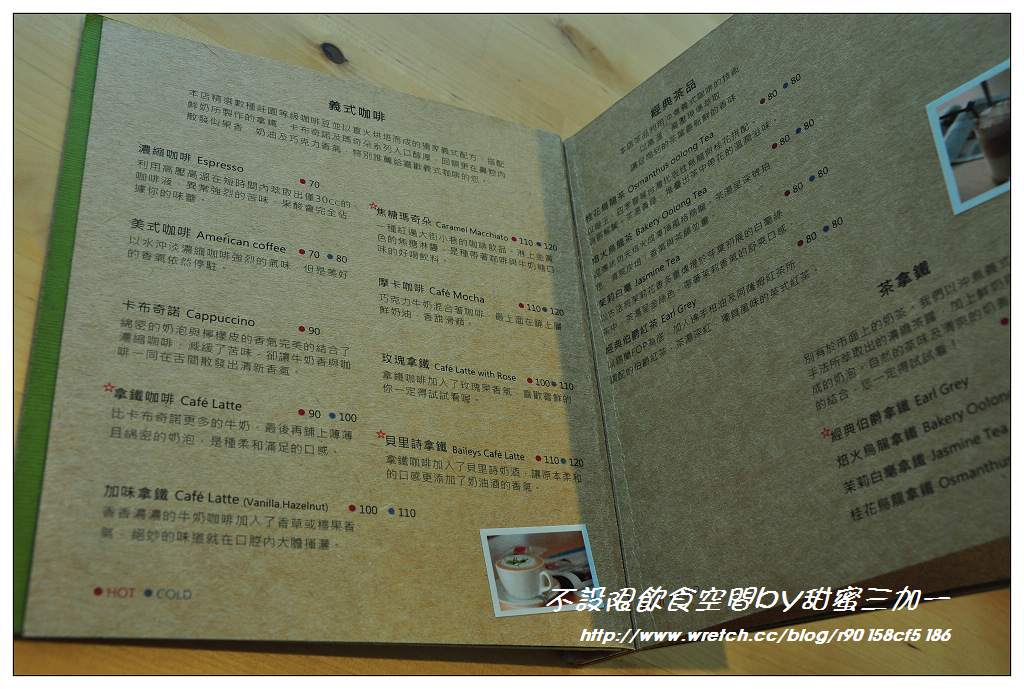 義式咖啡
本店精選數種莊園等級咖啡豆並以直火烘焙而成的獨家義式配方，搭配
鮮奶所製作的拿鐵、卡布奇諾及瑪奇朵系列入口醇厚，回韻更在鼻腔內
散發似果香、奶油及巧克力香氣，特別推薦給喜歡義式咖啡的您。
濃縮咖啡 Espresso ●70
利用高壓高溫在短時間內萃取出僅30cc的
咖啡液，異常強烈的苦味、果酸會完全佔
據你的味蕾。
美式咖啡 American coffee ●70 ●80
以水沖淡濃縮咖啡強烈的氣味，但是美好
的香氣依然停駐。
卡布奇諾 Cappuccino ●90
綿密的奶泡與檸檬皮的香氣完美的結合了
濃縮咖啡，減緩了苦味，卻讓牛奶香與咖
啡一同在舌間散發出清新香氣。
☆拿鐵咖啡 Café Latte ●90 ●100
比卡布奇諾更多的牛奶，最後再鋪上薄薄
且綿密的奶泡，是種柔和滿足的口感。
加味拿鐵 Café Latte (Vanilla.Hazelnut) ●100 ●110
香香濃濃的牛奶咖啡加入了香草或榛果香
氣，絕妙的味道就在口腔內大膽揮灑。
●HOT ●COLD
☆焦糖瑪奇朵 Caramel Macchiato ●110 ●120
一種紅遍大街小巷的咖啡飲品，淋上金黃
色的焦糖淋醬，是種帶著咖啡與牛奶糖口
味的好喝飲料。
摩卡咖啡 Café Mocha ●110 ●120
巧克力牛奶混合著咖啡，最上面在鋪上層
鮮奶油，香甜滑順。
玫瑰拿鐵 Café Latte with Rose ●100 ●110
拿鐵咖啡加入了玫瑰果香氣，喜歡嘗鮮的
你一定得試試看喔。
☆貝里詩拿鐵 Baileys Café Latte ●110 ●120
拿鐵咖啡加入了貝里詩奶酒，讓原本柔和
的口感更添加了奶油酒的香氣。
經典茶品
本店茶品利用沖煮義式咖啡的技術
以高溫、高壓現場萃取
讓您喝到的茶是最新鮮的香味
桂花烏龍茶 Osmanthus oolong Tea ●80 ●80
焙火烏龍茶 Bakery Oolong Tea ●80 ●80
茉莉白毫 Jasmine Tea ●80 ●80
經典伯爵紅茶 Earl Grey ●80 ●80
調配的伯爵紅茶，茶湯深紅，獨具風味的英式紅茶
茶拿鐵
別有於市面上的奶茶，我們以沖煮義式
手法所萃取出的濃縮茶露，加上鮮奶
成的奶泡，自然的茶味及清爽的奶
的結合，您一定得試試看！
☆經典伯爵拿鐵 Earl Grey
焙火烏龍拿鐵 Bakery Oolong
茉莉白毫拿鐵 Jasmine Tea
桂花烏龍拿鐵 Osmanthus
不設限飲食空間by甜蜜三加一
http://www.wretch.cc/blog/r90158cf5186